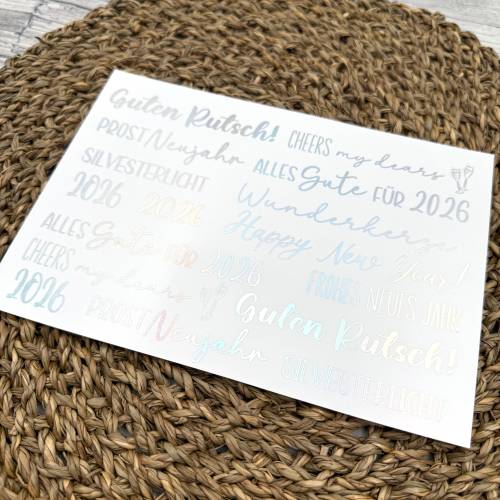 Guten Rutsch! CHEERS my dears
PROST Neujahr ALLES Gute FÜR 2026
SILVESTERLICHT Wunderkerze
2026 2026 Happy New Year!
ALLES Gute FÜR 2026 FROHES NEUES JAHR
CHEERS my dears Guten Rutsch!
2026 PROST Neujahr SILVESTERLICHT